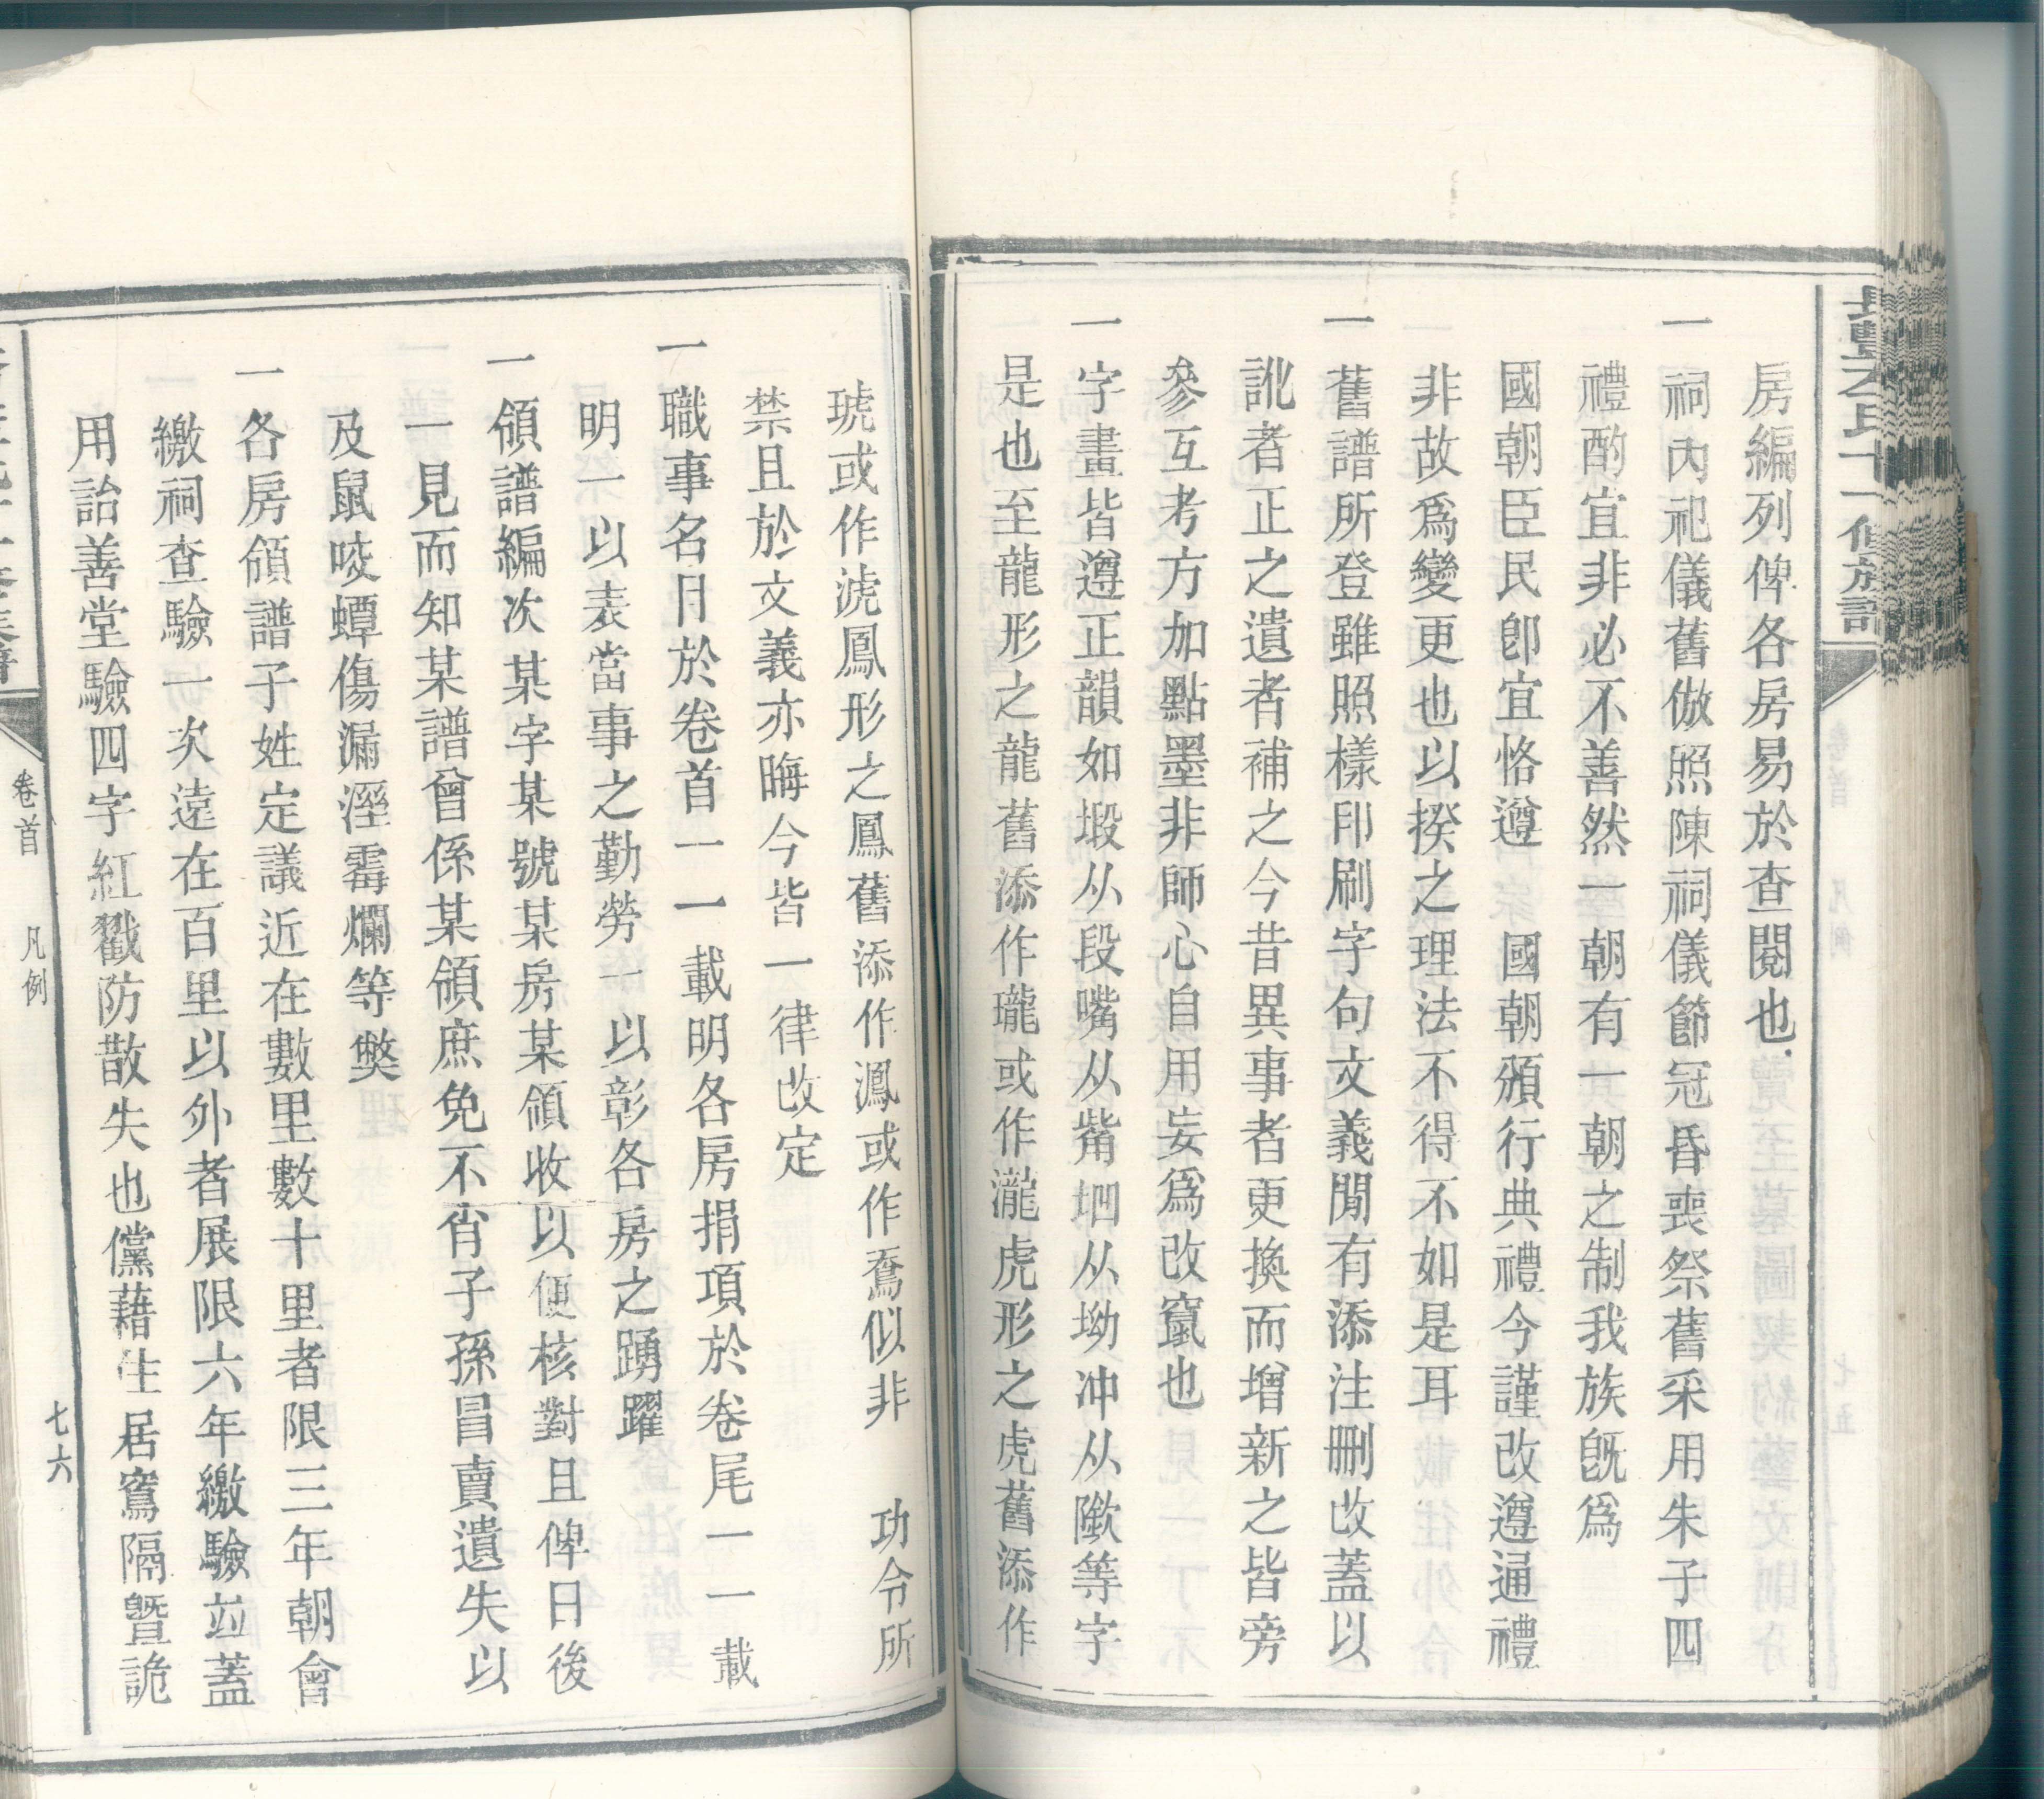 房編列俾各房易於查閱也
一祠內祀儀舊倣照陳祠儀節冠昏喪祭舊采用朱子四
禮酌宜非必不善然一朝有一朝之制我族旣爲
國朝臣民卽宜恪遵 國朝頒行典禮今謹改遵通禮
非故爲變更也以揆之理法不得不如是耳
一舊譜所登雖照樣印刷字句文義閒有添注刪改蓋以
訛者正之遺者補之今昔異事者更換而增新之皆旁
參互考方加點墨非師心自用妄爲改竄也
一字畫皆遵正韻如塅从段嘴从觜㘭从坳冲从隞等字
是也至龍形之龍舊添作瓏或作瀧虎形之虎舊添作
琥或作淲鳳形之鳳舊添作㵯或作鶱似非 功令所
禁且於文義亦晦今皆一律改定
一職事名目於卷首一一載明各房捐項於卷尾一一載
明一以表當事之勤勞一以彰各房之踴躍
一領譜編次某字某號某房某領收以便核對且俾日後
一見而知某譜曾係某領庶免不肖子孫冒賣遺失以
及鼠咬蟫傷漏溼霉爛等獘
一各房領譜子姓定議近在數里數十里者限三年朝會
繳祠查驗一次遠在百里以外者展限六年繳驗竝蓋
用詒善堂驗四字紅戳防散失也儻藉住居窵隔曁詭
卷首 凡例
七六